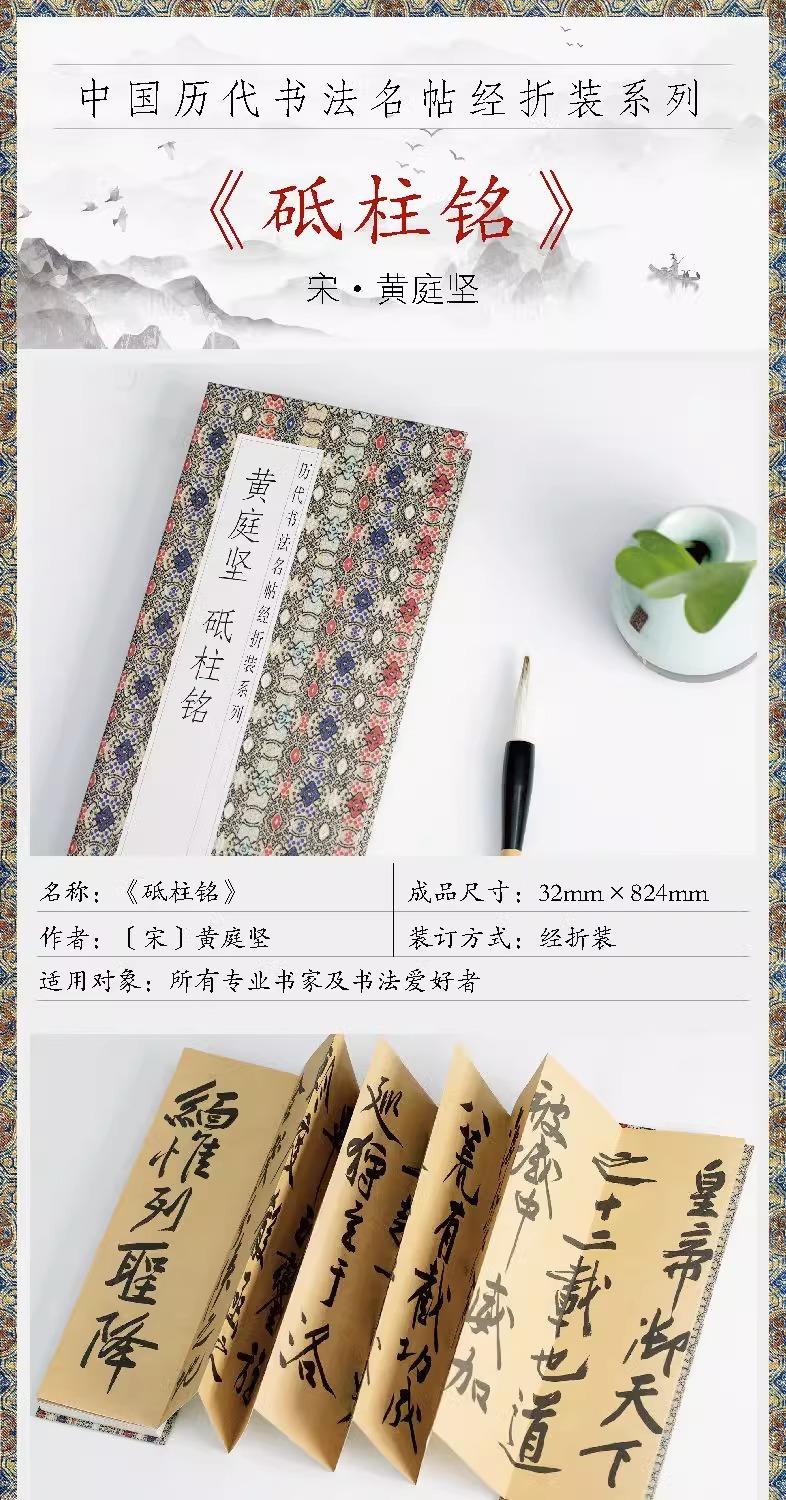 中国历代书法名帖经折装系列
《砥柱铭》
宋·黄庭坚
历代书法名帖经折装系列
黄庭坚 砥柱铭
名称：《砥柱铭》
成品尺寸：32mm×824mm
作者：〔宋〕黄庭坚
装订方式：经折装
适用对象：所有专业书家及书法爱好者
皇帝御天下
之十二载也道
被域中威加
八荒有截功成
巡狩至于洛
缅惟列圣降